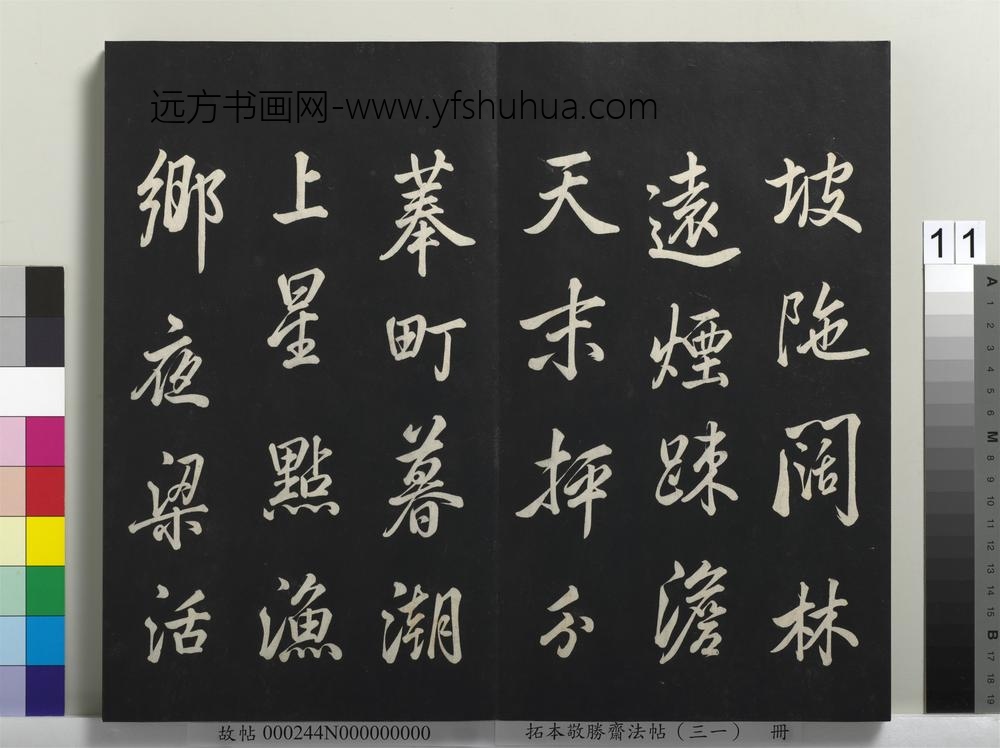 远方书画网-www.yfshuhua.com
坡陁闊林
遠煙踈澹
天末抨分
菶町暮潮
上星點漁
鄉夜梁活
11
A 1 2 3 4 5 6 M 8 9 10 11 12 13 14 15 B 17 18 19
拓本敬勝齋法帖（三一） 冊
故帖 000244N000000000